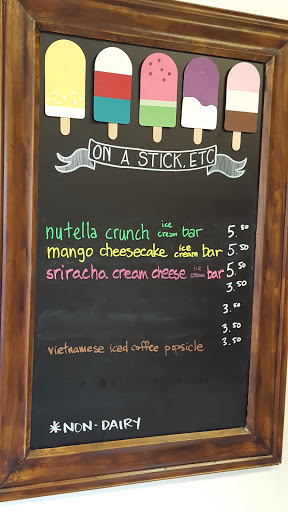 ON A STICK, ETC
nutella crunch ice cream bar 5.50
mango cheesecake ice cream bar 5.50
sriracha cream cheese ice cream bar 5.50
3.50
3.50
3.50
vietnamese iced coffee popsicle 3.50
*NON-DAIRY